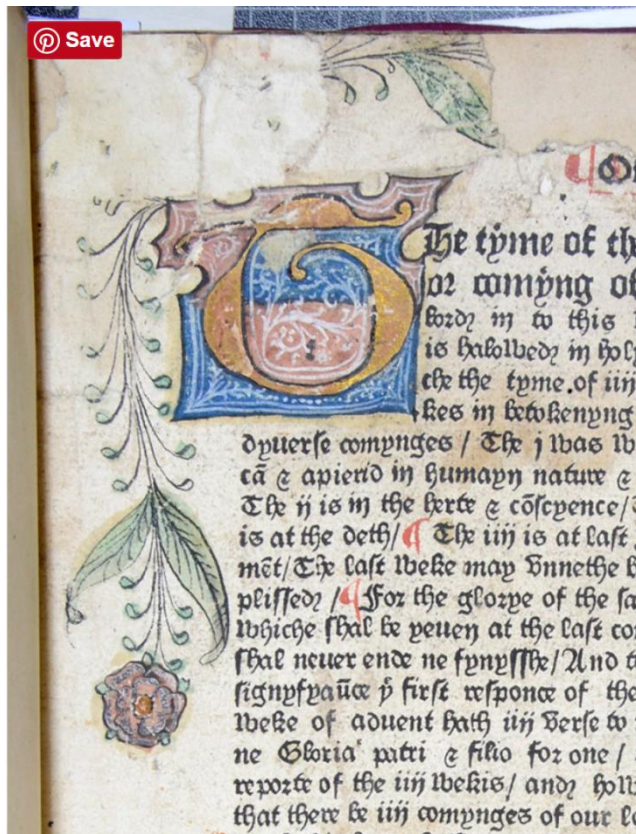 Save
The tyme of th
or comyng of
lord in to this
is halowed in hol
che the tyme.of iiij
kes in betokenyng
dyuerse comynges / The j was w
cā & apierid in humayn nature &
The ij is in the herte & cōscyence/
is at the deth/¶ The iiij is at last
mēt/The last weke may vnnethe
plissed /¶For the glorye of the sa
whiche shal be yeuen at the last co
shal neuer ende ne fynysshe/And t
signyfyaūce yͤ first responce of the
weke of aduent hath iiij verse to
ne Gloria patri & filio for one /
reporte of the iiij wekis/ and how
that there be iiij comynges of our lo